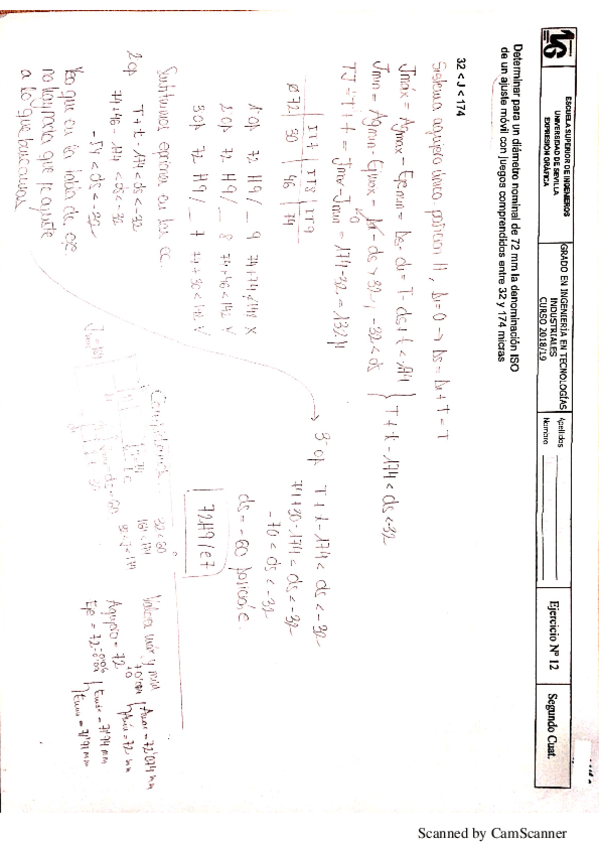 ESCUELA SUPERIOR DE INGENIEROS
UNIVERSIDAD DE SEVILLA
EXPRESIÓN GRÁFICA
GRADO EN INGENIERÍA EN TECNOLOGÍAS
INDUSTRIALES
CURSO 2018/19
Apellidos
Nombre
Ejercicio Nº 12
Segundo Cuat.
Determinar para un diámetro nominal de 72 mm la denominación ISO
de un ajuste móvil con juegos comprendidos entre 32 y 174 micras
32 < J < 174
Sistema agujero único, posición H, Di=0 → Ds = Di + T = T
Jmáx = Agmax - Ejemin = Ds - di = T - ds + t < 174
T + t - 174 < ds < -32
Jmin = Agmin - Ejmax = Di - ds > 32 , -32 < ds
TJ = T + t = Jmax - Jmin = 174 - 32 = 142 μ
IT7 | IT8 | IT9
Ø72 | 30 46 | 74
1 op 72 H9/_ 9 74+74 < 142 X
2 op 72 H9/_ 8 74+46 < 142 V
3 op 72 H9/_ 7 74+30 < 142 V
Sustituimos opciones en las ec.
2 op T + t - 174 < ds < -32
74+46-174 < ds < -32
-54 < ds < -32
Veo que en la tabla de eje
no hay posición que se ajuste
a lo que buscamos
3 op T + t - 174 < ds < -32
74+30-174 < ds < -32
-70 < ds < -32
ds = -60 posición e.
72H9/e7
32 < 60
164 < 174
32 < J < 174
Valor máx y min
Agujero = 72
Amin = 72 mm
Scanned by CamScanner